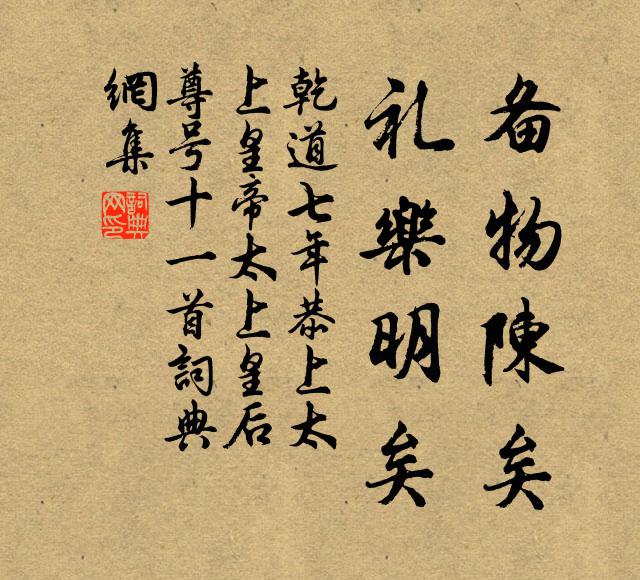 备物陳矣
礼樂明矣
乾道七年恭上太
上皇帝太上皇后
尊号十一首詞典
網集
詞典网印